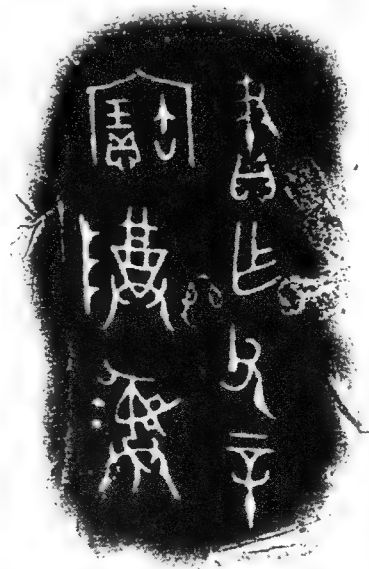 乍父辛
寶𬯚彝